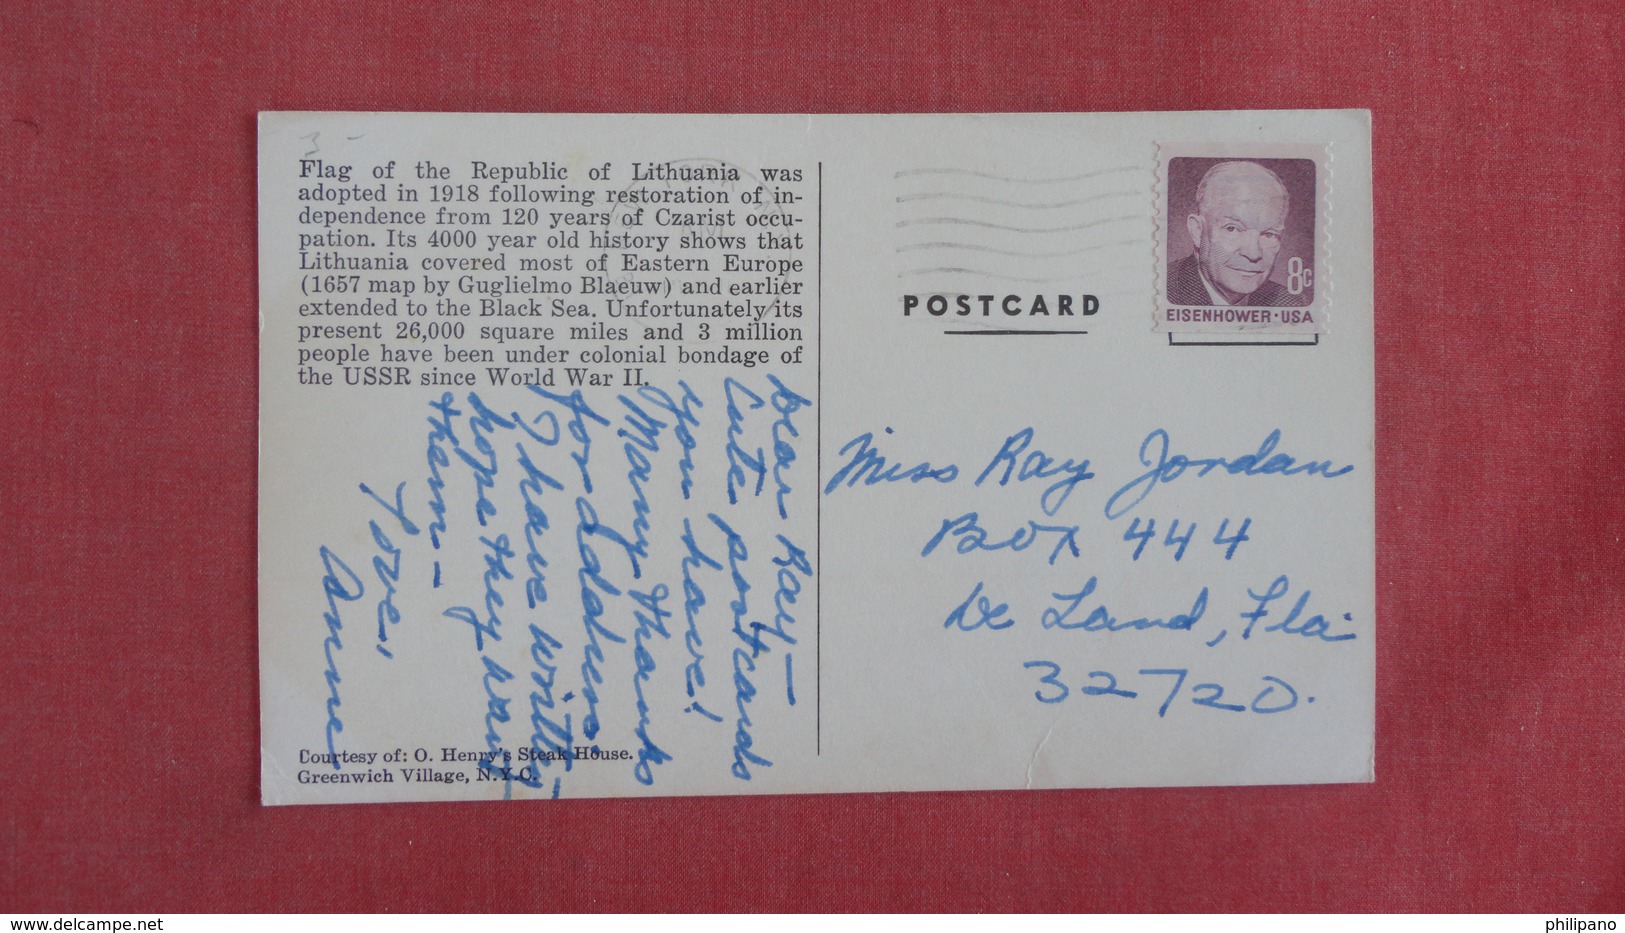 Flag of the Republic of Lithuania was
adopted in 1918 following restoration of in-
dependence from 120 years of Czarist occu-
pation. Its 4000 year old history shows that
Lithuania covered most of Eastern Europe
(1657 map by Guglielmo Blaeuw) and earlier
extended to the Black Sea. Unfortunately its
present 26,000 square miles and 3 million
people have been under colonial bondage of
the USSR since World War II.
Dear Ray—
Cute postcards
you have!
Many thanks
for address.
I have written—
hope they have
them—
Love,
Anne
Courtesy of: O. Henry's Steak House.
Greenwich Village, N.Y.C.
POSTCARD
8c
EISENHOWER·USA
Miss Ray Jordan
Box 444
De Land, Fla.
32720.
www.delcampe.net
philipano